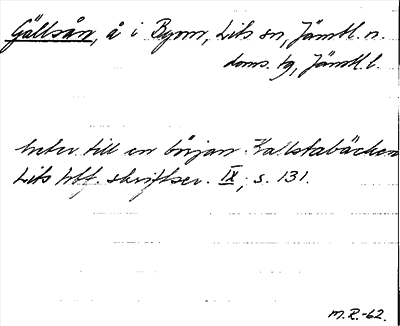 Gällsån, å i Byom, Lits sn, Jämtl. n.
doms. tg, Jämtl. l.
heter till en början Kallstabäcken
Lits hbf. skriftser. IX, s. 131.
M.R.-62.